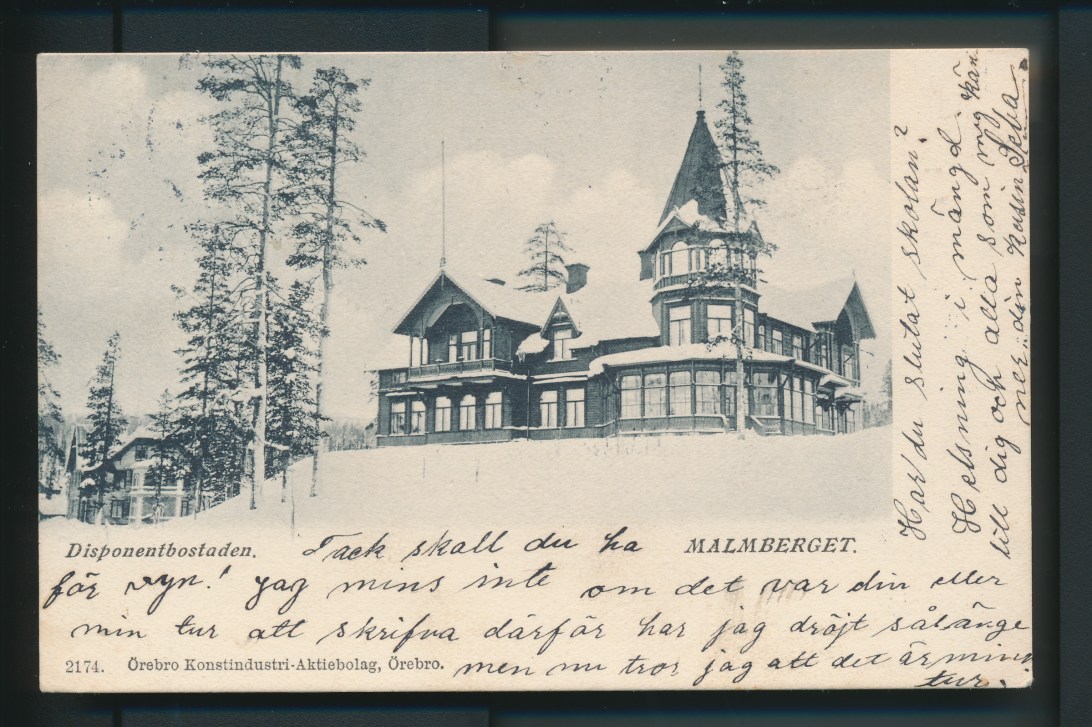 Disponentbostaden. Tack skall du ha MALMBERGET.
för vyn! jag mins inte om det var din eller
min tur att skrifva därför har jag dröjt sålänge
2174. Örebro Konstindustri-Aktiebolag, Örebro. men nu tror jag att det är min
tur.
Har du slutat skolan?
Helsning i mängd
till dig och alla som mig kän
ner din kusin